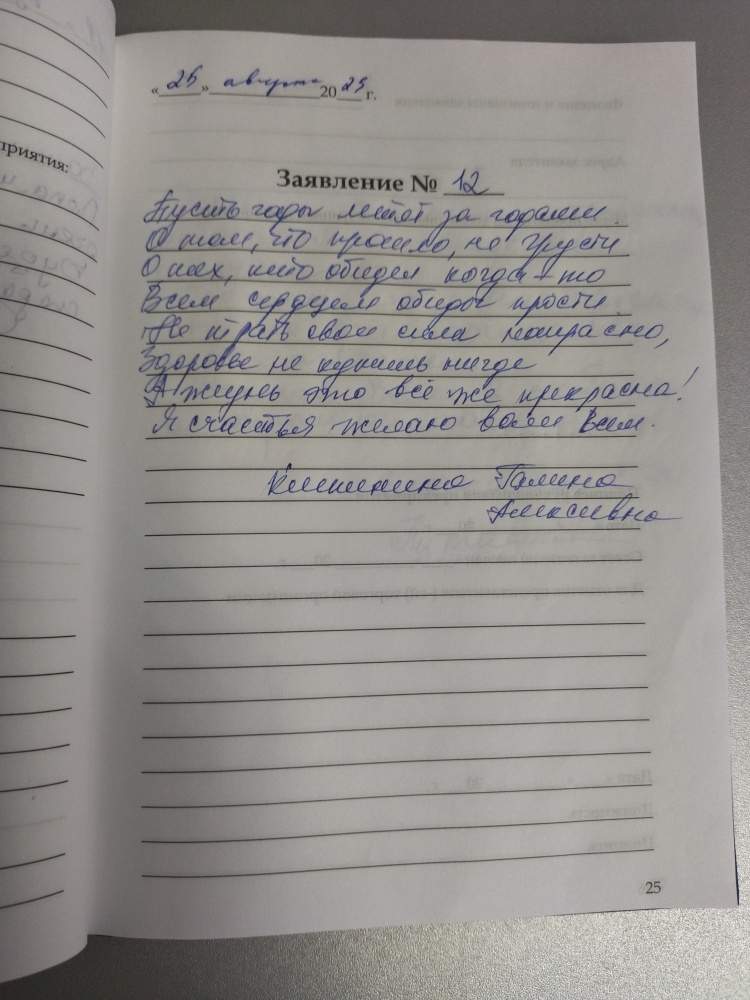 приятия:
«25» августа 2025 г.
Заявление № 12
Пусть годы летят за годами
О том, что прошло, не грусти
О тех, кто обидел когда-то
Всем сердцем обиды прости.
Не трать свои силы напрасно,
Здоровье не купишь нигде
А жизнь это всё же прекрасна!
Я счастья желаю вам всем.
Галина
Алексивна
25